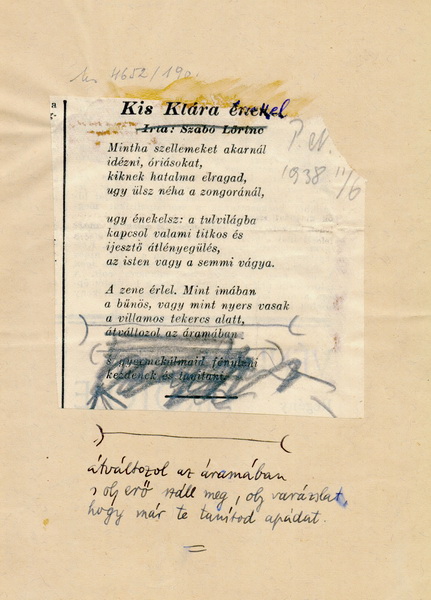 Ms 4652/190
Kis Klára énekel
Irta: Szabó Lőrinc
P. N.
1938 II/6
Mintha szellemeket akarnál
idézni, óriásokat,
kiknek hatalma elragad,
ugy ülsz néha a zongoránál,
ugy énekelsz: a tulvilágba
kapcsol valami titkos és
ijesztő átlényegülés,
az isten vagy a semmi vágya.
A zene érlel. Mint imában
a bűnös, vagy mint nyers vasak
a villamos tekercs alatt,
átváltozol az áramában
s gyermekálmaid fényleni
kezdenek és tanitani.
átváltozol az áramában
s oly erő száll meg, oly varázslat,
hogy már te tanítod apádat.